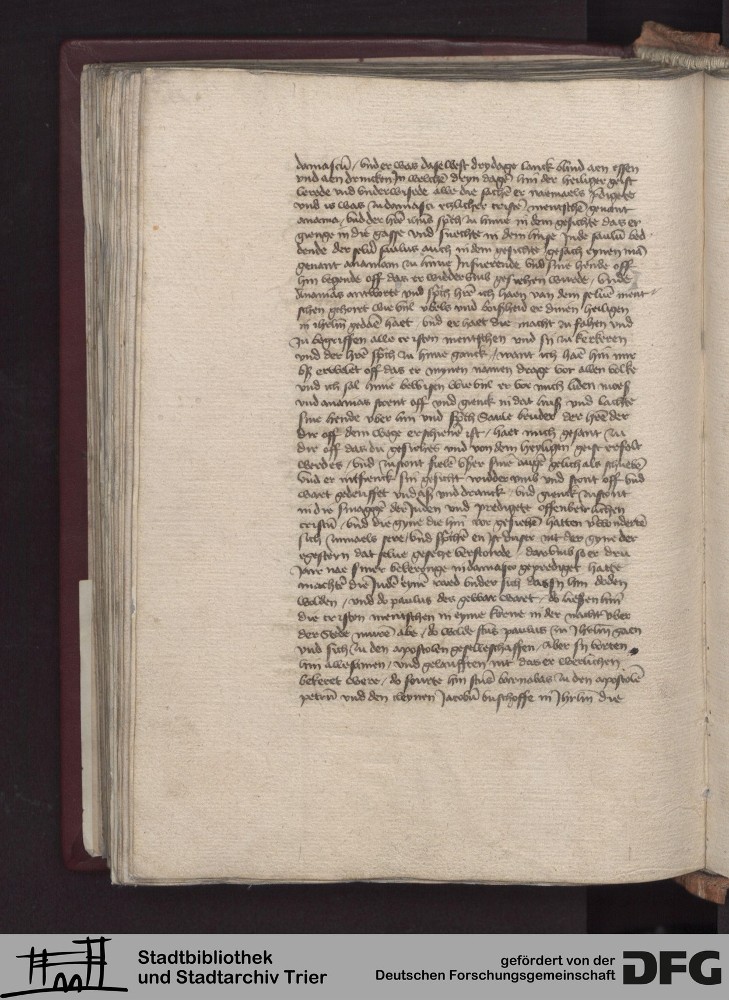 damascū / vnd er was daselbest dry dage lanck blind aen essen
vnd aen drincken Jn welchē dryn dagē hin der heiliger geist
lerede vnd vnderwisede alle die sachē er naemaels p̄digete
vnd is was zu damasci etzlicher cristē mentschē genant
anania / vnd der hr̄e ih̄us sp̄ch zu hime in dem gesichte das er
gienge in die gasse vnd suechte in dem huse Jude saulū bed
dende der selue saulus auch in dem gesichte gesach eynen mā
genant ananiam zu hime Jnfuerende vnd sine hende off
hin legende off das er widder vmb gesiehen wurde / vnde
Ananias antworte vnd sp̄ch hr̄e ich haen van dem seluē ment
schen gehort wie vil vbels vnd boißheid er dinen heiligen
in ihrlm̄ gedaē haet / vnd er haet die macht zu fahen vnd
zu begriffen alle cristen mentschen vnd sy zu kerkeren
vnd der hr̄e sp̄ch zu hime ganck / want ich haē hin mir
vß erwelet off das er mynen namen drage vor allen volke
vnd ich sal hime bewisen wie vil er vor mich liden moeß
vnd ananias stoent off vnd gienck in dat huß vnd lachte
sine hende vber hin vnd sp̄ch Saule bruder der hr̄e der
dir off dem wege erschienē ist / haet mich gesant zu
dir off das du gesiehes vnd von dem heyligen geist erfolt
werdes / vnd zustont fielē vber sine augē gelich als schuebē
vnd er entfienck sin gesicht widder vmb vnd stont off vnd
wart gedeuffet vnd aß vnd dranck / vnd gienck zustont
in die sinagoge der Juden vnd predigete offenberlichen
cristū / vnd die gyne die hin vor gesiehē hatten v̄wonderte
sich zumaels sere / vnd sp̄chē en ist dieser nit der gyne der
egestern dat selue gesetze verstorde / dar vmb so er dru
Jair nae siner bekerunge in damasco geprediget hatte
machtē die Judē eynē raed vnder sich das sy hin doden
wolden / vnd do paulus des gewar wart / do liessen hin
die cristen mentschen in eyme korue in der nacht vber
der Stede mure abe / do wolde sāt paulus zu Jhrlm̄ gaen
vnd sich zu den apostolen geselleschaffen / Aber sy vorten
hin alle samen / vnd gelaufften nit das er werlichen
bekeret were / do fuerte hin sāt barnabas zu den apostolē
petrū vnd den cleynen Jacobū buschoffe in Jhrlm̄ die
Stadtbibliothek
und Stadtarchiv Trier
gefördert von der
Deutschen Forschungsgemeinschaft
DFG